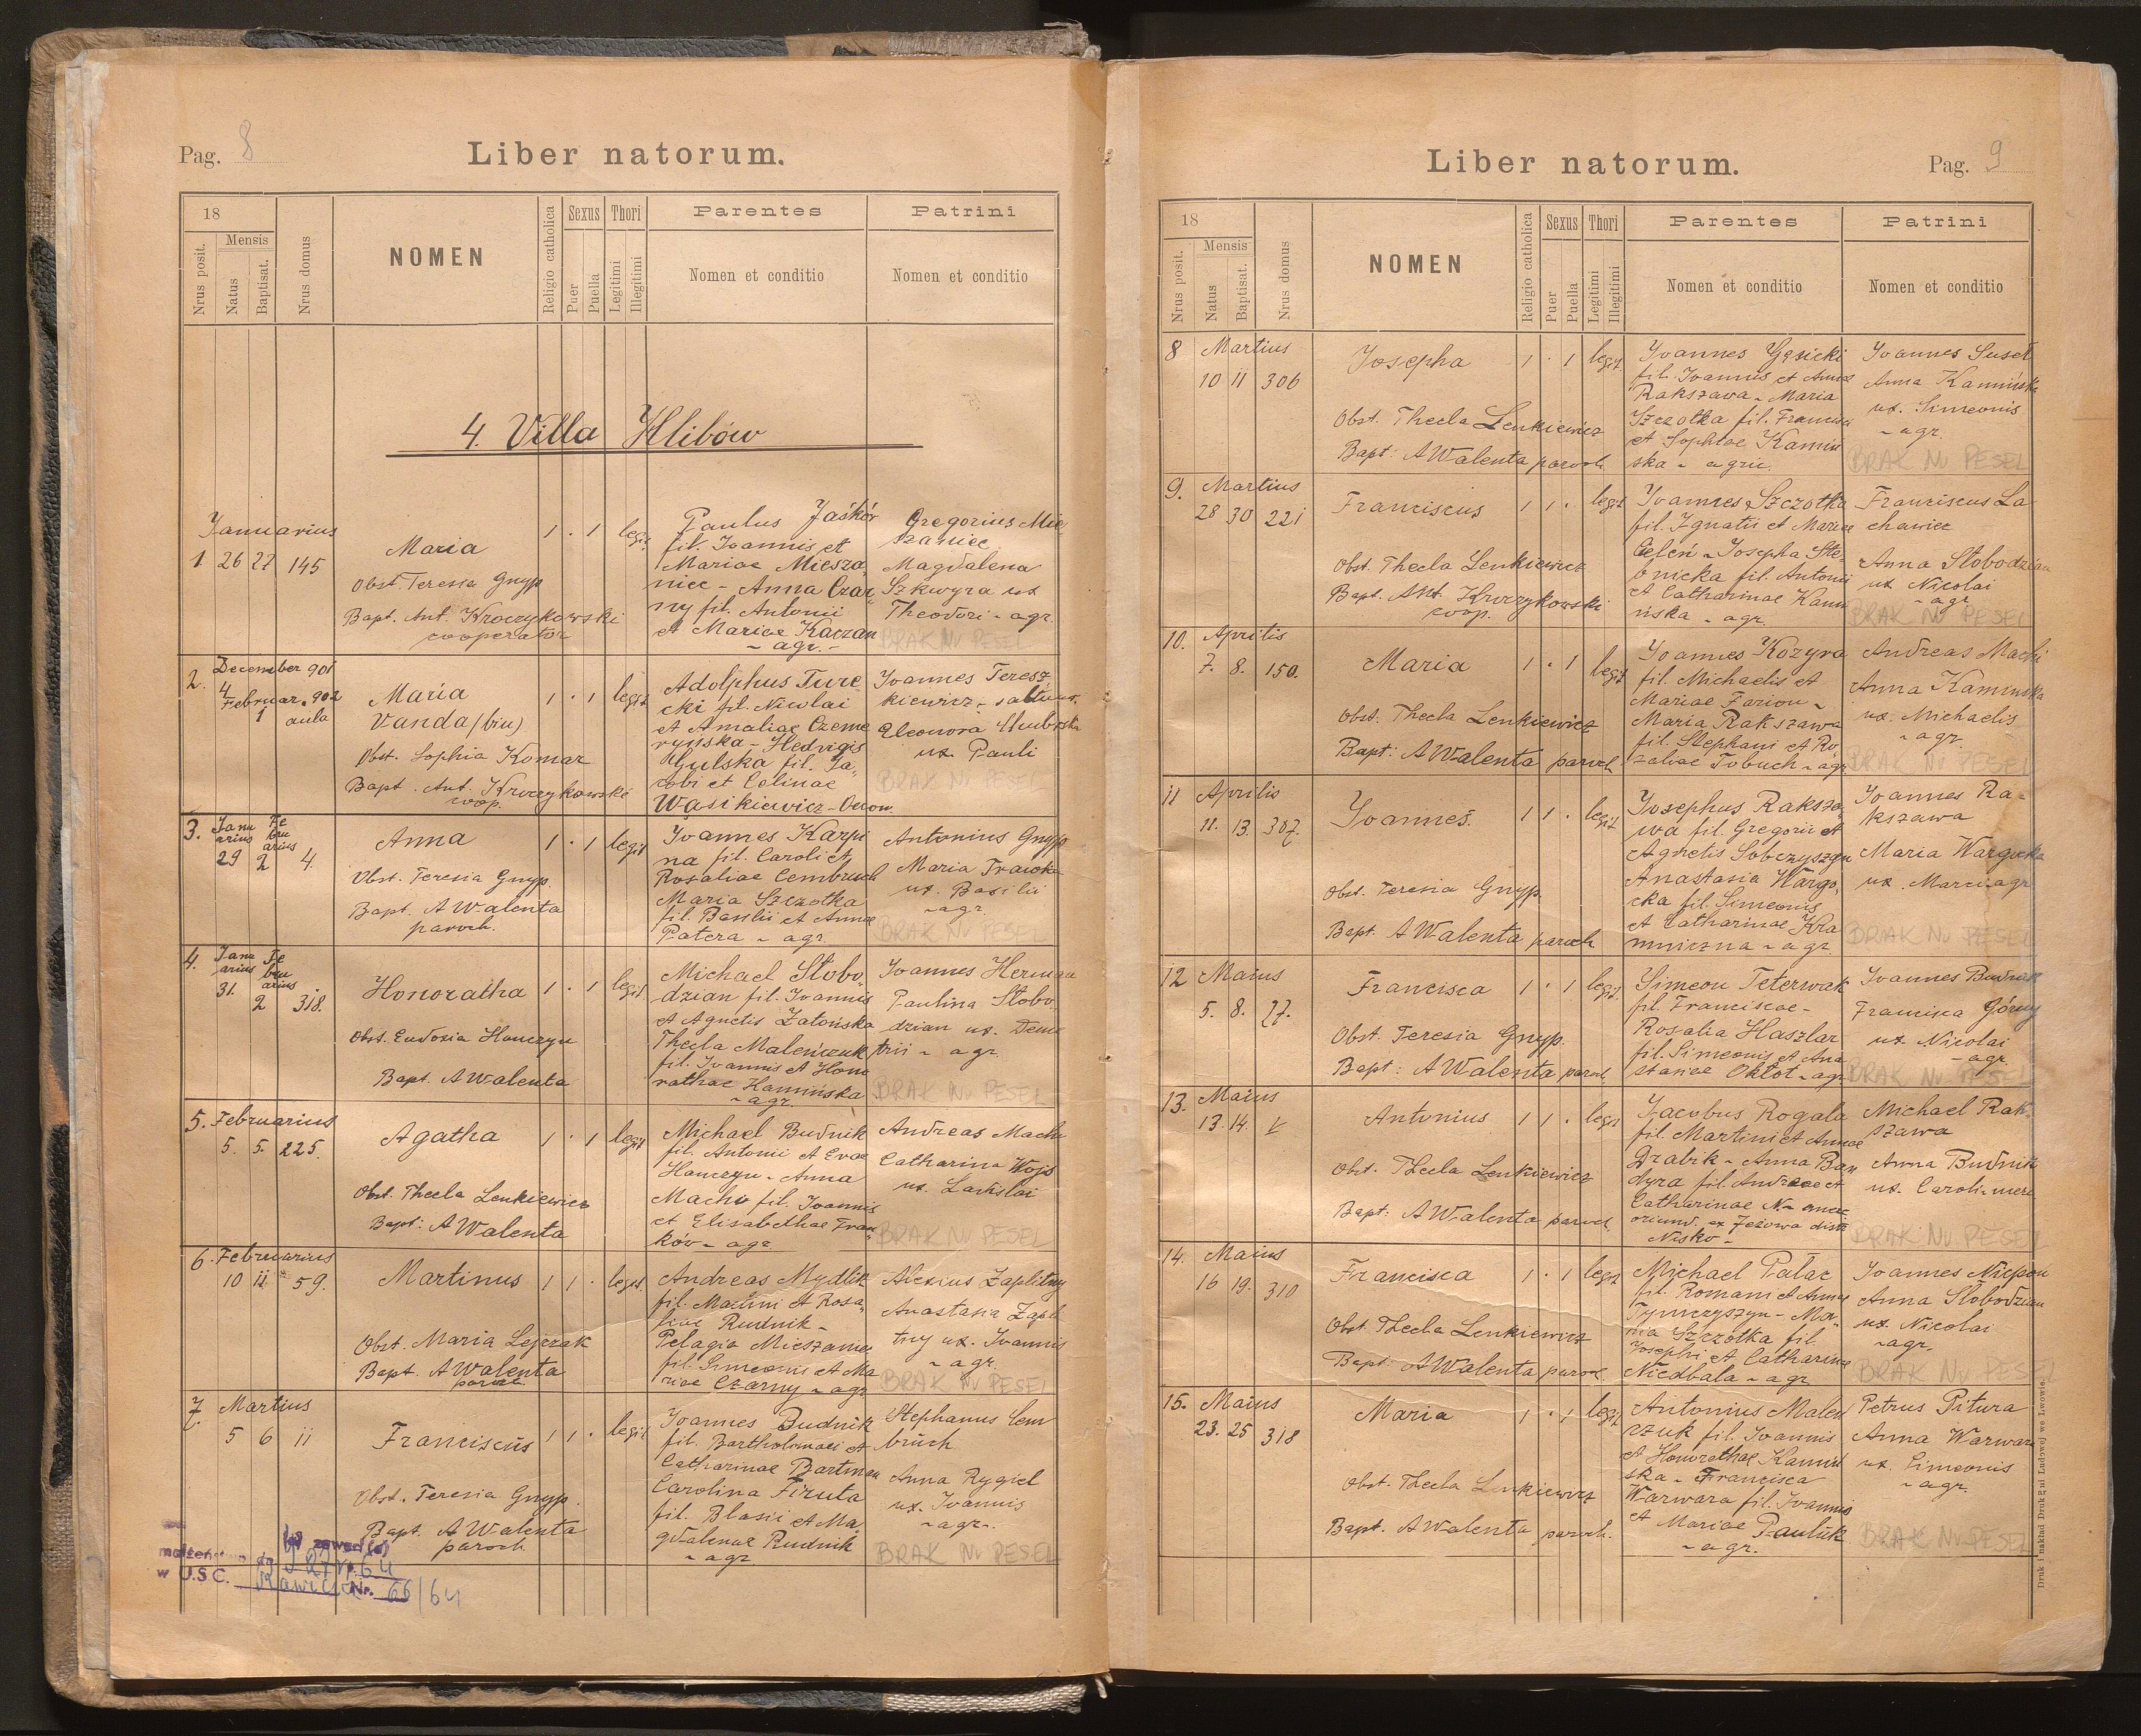 Pag. 8
Liber natorum.
18
Nrus posit.
Mensis
Natus
Baptisat.
Nrus domus
NOMEN
Religio catholica
Sexus
Puer
Puella
Thori
Legitimi
Illegitimi
Parentes
Nomen et conditio
Patrini
Nomen et conditio
4. Villa Hlibów
Januarius
1 26 27 145
Maria
1 · 1 legit.
Obst. Teresia Gnyp
Bapt. Ant. Kroczykowski
cooperator
Paulus Jaśków
fil. Joannis et
Mariae Miesza
niec - Anna Czar
ny fil. Antonii
et Mariae Kaczan
- agr. -
Gregorius Mie
szaniec
Magdalena
Szkwyra ux
Theodori - agr.
BRAK Nu PESEL
2. December 901
4
Februar. 902
1 aula
Maria
Vanda (bin)
1 · 1 legit
Obst. Sophia Komar
Bapt. Ant. Kroczykowski
coop.
Adolphus Ture
cki fil. Nicolai
et Amaliae Czeme
ryńska - Hedvigis
Gulska fil. Ja
cobi et Celinae
Wąsikiewicz - Oecon.
Joannes Teresz
kiewicz -
Eleonora
ux. Pauli
BRAK Nu PESEL
3. Janu Fe
arius bru
arius
29 2 4.
Anna
1 · 1 legit
Obst. Teresia Gnyp.
Bapt. A Walenta
paroch.
Joannes Karpi
na fil. Caroli et
Rosaliae Cembruch
Maria Szczotka
fil. Basilii et Annae
Patera - agr.
Antonius Gnyp
Maria
ux. Basilii
- agr.
BRAK Nu PESEL
4. Janu Fe
arius bru
arius
31. 2 318.
Honoratha
1 · 1 legit.
Obst. Eudosia Hanczyn
Bapt. A Walenta
Michael Słobo
dzian fil. Joannis
et Agnetis Zatońska
Thecla Maleńczuk
fil. Joannis et Hono
rathae Kamińska
- agr.
Joannes Herman
Paulina Słobo
dzian ux. Deme
trii - agr.
BRAK Nu PESEL
5. Februarius
5. 5. 225.
Agatha
1 · 1 legit
Obst. Thecla Lenkiewicz
Bapt: A Walenta
Michael Budnik
fil. Antonii et Evae
Hanczyn - Anna
Machu fil. Joannis
et Elisabethae Fran
ków - agr.
Andreas Mach
Catharina Wojs
ux. Ladislai
BRAK Nu PESEL
6. Februarius
10 11 59.
Martinus
1 1 · legit.
Obst. Maria Lejczak
Bapt. A Walenta
paroch.
Andreas Mydlik
fil. Martini et Rosa
liae Rudnik -
Pelagia Mieszaniec
fil. Simeonis et Ma
riae Czarny - agr
Alexius Zaplitny
Anastasia Zapli
tny ux. Joannis
- agr.
BRAK Nu PESEL
7. Martius
5 6 11
Franciscus
1 1 · legit
Obst. Teresia Gnyp.
Bapt. A Walenta
paroch.
Joannes Budnik
fil. Bartholomaei et
Catharinae Bartman
Carolina Firuta
fil. Blasii et Ma
gdalenae Rudnik
- agr
Stephanus Cem
bruch
Anna Rygiel
ux. Joannis
- agr.
BRAK Nu PESEL
małżeń
w U.S.C.
Nr. 66/64
Liber natorum.
Pag. 9
18
Nrus posit.
Mensis
Natus
Baptisat.
Nrus domus
NOMEN
Religio catholica
Sexus
Puer
Puella
Thori
Legitimi
Illegitimi
Parentes
Nomen et conditio
Patrini
Nomen et conditio
8 Martius
10 11 306
Josepha
1 · 1 legit.
Obst. Thecla Lenkiewicz
Bapt: A Walenta paroch.
Joannes Gąsicki
fil. Joannis et Annae
Rakszawa - Maria
Szczotka fil. Francisci
et Sophiae Kamin
ska - agric.
Joannes Suseł
Anna Kamińska
ux. Simeonis
- agr.
BRAK Nu PESEL
9. Martius
28 30 221
Franciscus
1 1 · legit
Obst. Thecla Lenkiewicz
Bapt. Ant. Kroczykowski
coop.
Joannes Szczotka
fil. Ignatii et Mariae
Cieleń - Josepha Ste
bnicka fil. Antonii
et Catharinae Kami
ńska - agr.
Franciscus La
chawiec
Anna Słobodzian
ux Nicolai
- agr
BRAK Nu PESEL
10. Aprilis
7. 8. 150.
Maria
1 · 1 legit
Obst. Thecla Lenkiewicz
Bapt: A Walenta paroch
Joannes Kozyra
fil. Michaelis et
Mariae Farion -
Maria Rakszawa
fil. Stephani et Ro
zaliae Tobuch - agr
Andreas Machi
Anna Kaminska
ux. Michaelis
- agr.
BRAK Nu PESEL
11 Aprilis
11. 13. 307.
Joannes.
1 1 · legit
Obst. Teresia Gnyp.
Bapt. A Walenta paroch
Josephus Raksza
wa fil. Gregorii et
Agnetis Sobczyszyn
Anastasia Wargo
cka fil. Simeonis
et Catharinae Kra
mniczna - agr
Joannes Ra-
kszawa
Maria Wargocka
ux. Marci - agr
BRAK Nu PESEL
12 Maius
5. 8. 27.
Francisca
1 · 1 legit.
Obst. Teresia Gnyp.
Bapt: A Walenta paroch.
Simeon Teterwak
fil. Franciscae -
Rosalia Haszlar
fil. Simeonis et Ana
stasiae Oktot - agr
Joannes Budnik
Francisca Górny
ux. Nicolai
- agr
BRAK Nu PESEL
13. Maius
13. 14.
Antonius
1 1 · legit
Obst. Thecla Lenkiewicz
Bapt: A Walenta paroch
Jacobus Rogala
fil. Martini et Annae
Drabik - Anna Ban
dyra fil Andreae et
Catharinae N -
oriund. ex Jeżowa distr
Nisko -
Michael Rak
szawa
Anna Budnik
ux. Caroli - merc
BRAK Nu PESEL
14. Maius
16 19. 310
Francisca
1 · 1 legit
Obst. Thecla Lenkiewicz
Bapt: A Walenta paroch.
Michael Pałac
fil. Romani et Annae
Tymczyszyn - Ma
ria Szczotka fil.
Josephi et Catharinae
Niedbala - agr
Joannes
Anna Słobodzian
ux. Nicolai
- agr.
BRAK Nu PESEL
15. Maius
23. 25 318
Maria
1 · 1 legit
Obst. Thecla Lenkiewicz
Bapt. A Walenta paroch.
Antonius Maleń
czuk fil. Joannis
et Honorathae Kamiń
ska - Francisca
Warwara fil. Joannis
et Mariae Pauluk
- agr.
Petrus Pitura
Anna Warwara
ux. Simeonis
- agr.
BRAK Nu PESEL
Druk i nakład Drukarni Ludowej we Lwowie.